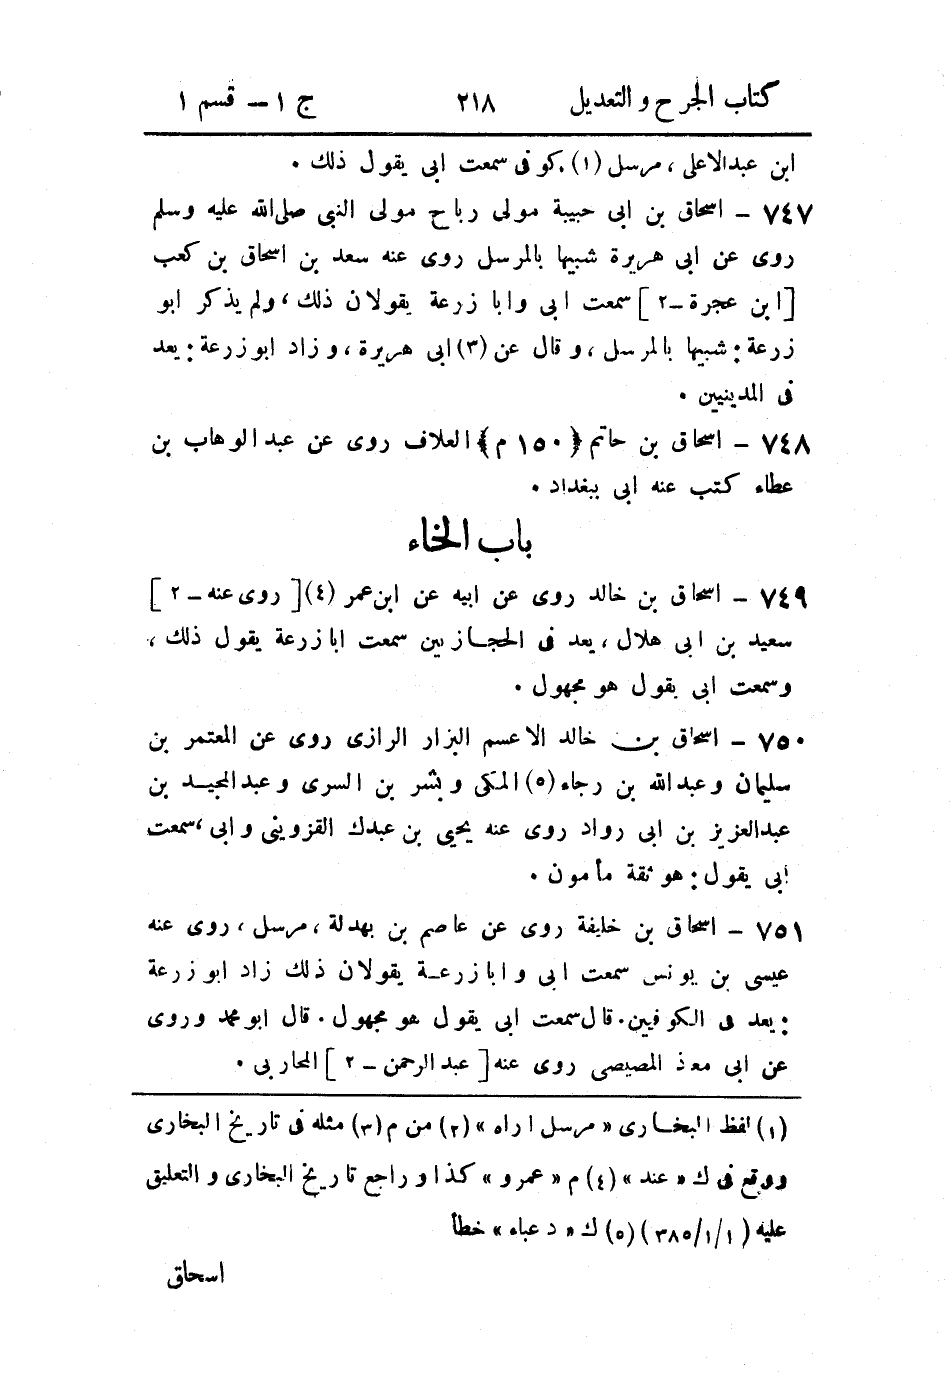 كتاب الجرح و التعديل ٢١٨ ج ١ – قسم ١
ابن عبدالاعلى ، مرسل (١) كوفى سمعت ابى يقول ذلك .
٧٤٧ – اسحاق بن ابى حبيبة مولى رباح مولى النبي صلى الله عليه وسلم
روى عن ابى هريرة شبيها بالمرسل روى عنه سعد بن اسحاق بن كعب
[ابن عجرة – ٢] سمعت ابى وابا زرعة يقولان ذلك ، ولم يذكر ابو
زرعة : شبيها بالمرسل ، و قال عن (٣) ابى هريرة ، و زاد ابو زرعة : يعد
فى المدنيين .
٧٤٨ – اسحاق بن حاتم ﴿١٥٠ م﴾ العلاف روى عن عبد الوهاب بن
عطاء كتب عنه ابى ببغداد .
باب الخاء
٧٤٩ – اسحاق بن خالد روى عن ابيه عن ابن عمر (٤) [روى عنه – ٢]
سعيد بن ابى هلال ، يعد فى الحجازيين سمعت ابا زرعة يقول ذلك ،
وسمعت ابى يقول هو مجهول .
٧٥٠ – اسحاق بن خالد الاعسم البزار الرازى روى عن المعتمر بن
سليمان و عبدالله بن رجاء (٥) المكى و بشر بن السرى و عبد المجيد بن
عبدالعزيز بن ابى رواد روى عنه يحيى بن عبدك القزوينى و ابى ، سمعت
ابى يقول : هو ثقة مأمون .
٧٥١ – اسحاق بن خليفة روى عن عاصم بن بهدلة ، مرسل ، روى عنه
عيسى بن يونس سمعت ابى و ابا زرعة يقولان ذلك زاد ابو زرعة
: يعد فى الكوفيين . قال سمعت ابى يقول هو مجهول . قال ابو محمد وروى
عن ابى معذ المصيصى روى عنه [عبد الرحمن – ٢] المحاربى .
(١) لفظ البخارى « مرسل اراه » (٢) من م (٣) مثله فى تاريخ البخارى
ووقع فى ك « عند » (٤) م « عمرو » كذا و راجع تاريخ البخارى و التعليق
عليه (١/١/٣٨٥) (٥) ك « دعباء » خطأ
اسحاق